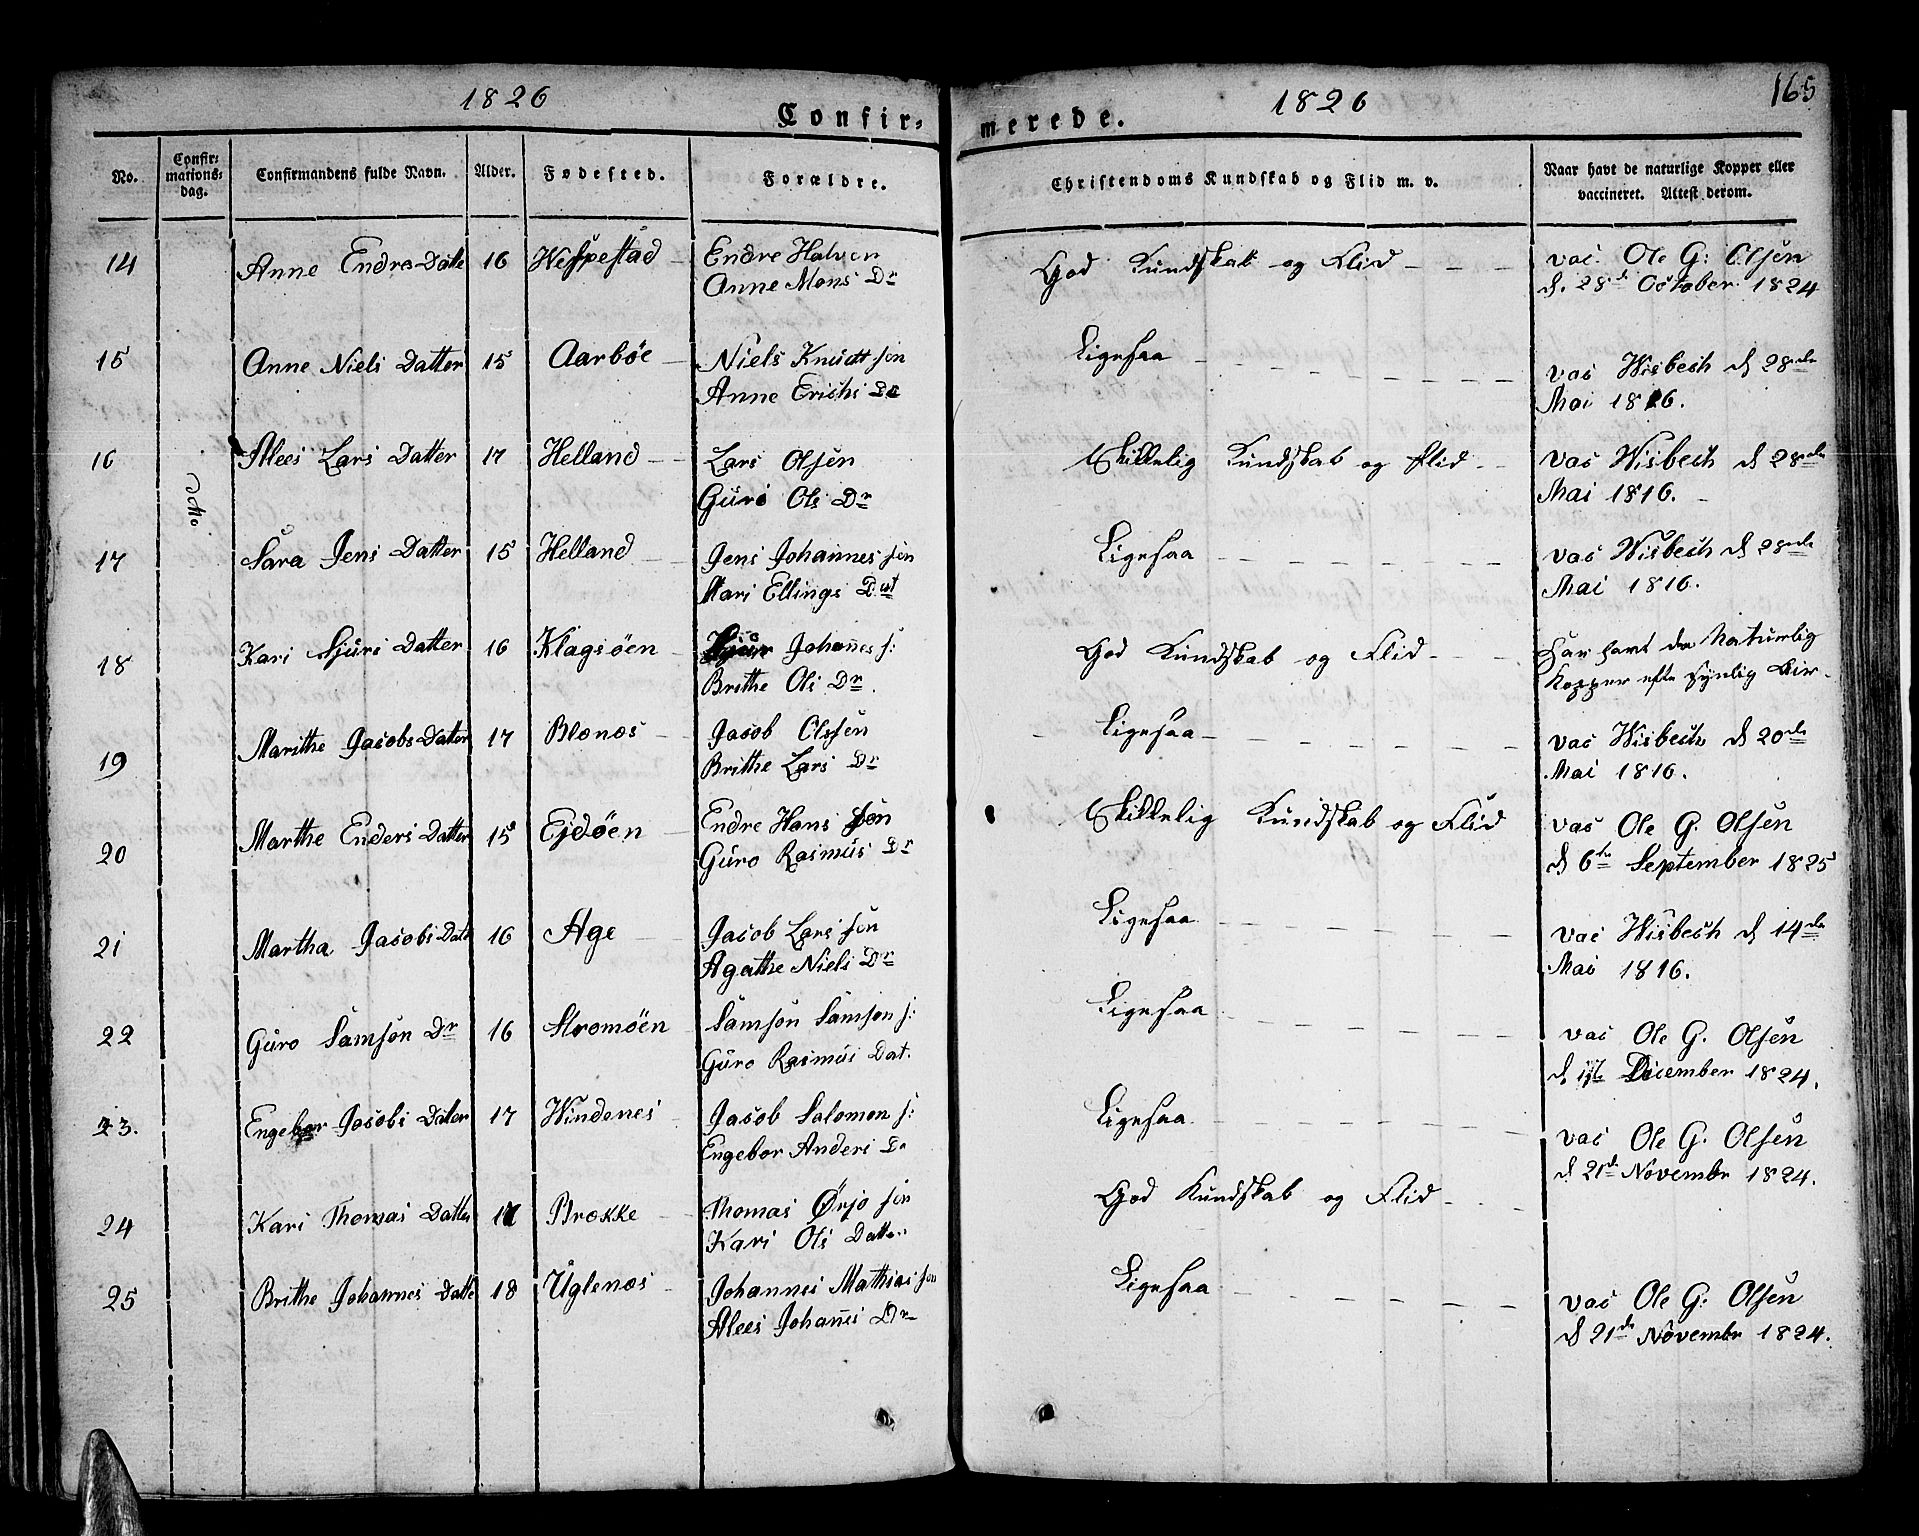 1826
Confir-
merede.
1826
165
No.
Confir-
mations-
dag.
Confirmandens fulde Navn.
Alder.
Fødested.
Forældre.
Christendoms Kundskab og Flid m. v.
Naar havt de naturlige Kopper eller
vaccineret. Attest derom.
14 Anne Endre Datte 16 Wespestad Endre Halvor God Kundskab og Flid vac. Ole G: Olsen
Anne Mons Dr d. 28d October 1824
15 Anne Niels Datter 15 Aarbøe Niels Knudt søn Ligesaa vac Wisbech d 28de
Anne Erichs Mai 1816.
16 Alees Lars Datter 17 Helland Lars Olsen Skikkelig Kundskab og flid vac Wisbech d 28de
ditto Guro Ols Dr Mai 1816.
17 Sara Jens Datter 15 Helland Jens Johannes søn Ligesaa vac Wisbech d 28de
Mari Ellings Dat Mai 1816.
18 Kari Sjurs Datter 16 Klagsöen Johannes s: God Kundskab og Flid Har havt de Naturlig
Brithe Ols Dr. Kopper efter synlig
19 Marithe Jacobs Datter 17 Blænæs Jacob Olssen Ligesaa vac Wisbech d 20de
Brithe Lars Dr Mai 1816.
20 Marthe Enders Datter 15 Ejdöen Endre Hans søn Skikkelig Kundskab og Flid vac Ole G. Olsen
Guro Rasmus Dr d 6te September 1825
21 Martha Jacobs Datt 16 Age Jacob Lars søn Ligesaa vac Wisbech d 14de
Agathe Niels Dr Mai 1816.
22 Guro Samson Dr 16 Stromöen Samson Samson s: Ligesaa vac Ole G. Olsen
Guro Rasmus Dat. d December 1824.
23. Engebor Jacobs Dater 17 Windenes Jacob Salomon s: Ligesaa vac Ole G. Olsen
Engebor Anders D d 21de Novembr 1824.
24 Kari Thomas Datter Brokke Thomas Ørjo søn God Kundskab og Flid
Kari Ols Datter
25 Brithe Johannes Datte 18 Uglenæs Johannes Mathias søn Ligesaa vac Ole G: Olsen
Alees Johannes Dr d 21de Novembr 1824.